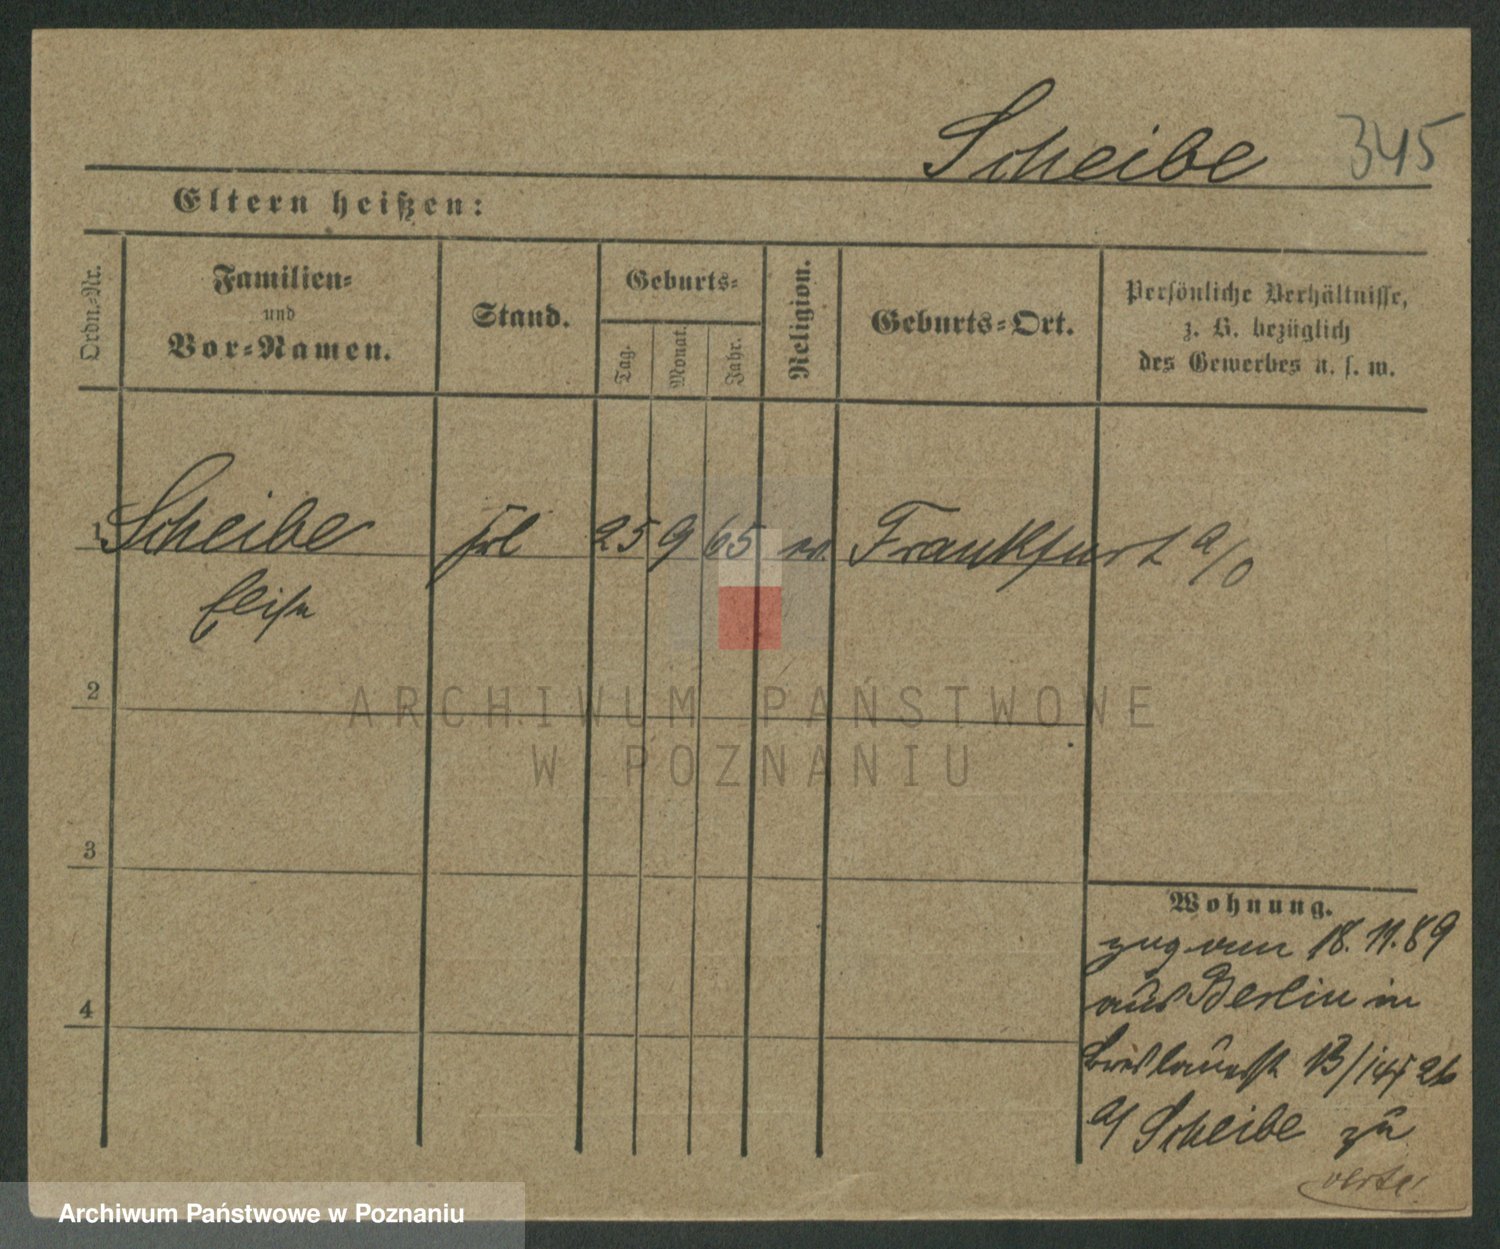 Scheibe 345
Eltern heißen:
Ordn.-Nr.
Familien-
und
Vor-Namen.
Stand.
Geburts-
Tag.
Monat.
Jahr.
Religion.
Geburts-Ort.
Persönliche Verhältnisse,
z. B. bezüglich
des Gewerbes u. s. w.
1 Scheibe Frl 25 9 65 ev. Frankfurt a/O
Elise
2
3
4
Wohnung.
zug vom 18. 11. 89
aus Berlin in
Breslauerst 13/14
a/ Scheibe zu
ARCHIWUM PAŃSTWOWE
W POZNANIU
Archiwum Państwowe w Poznaniu